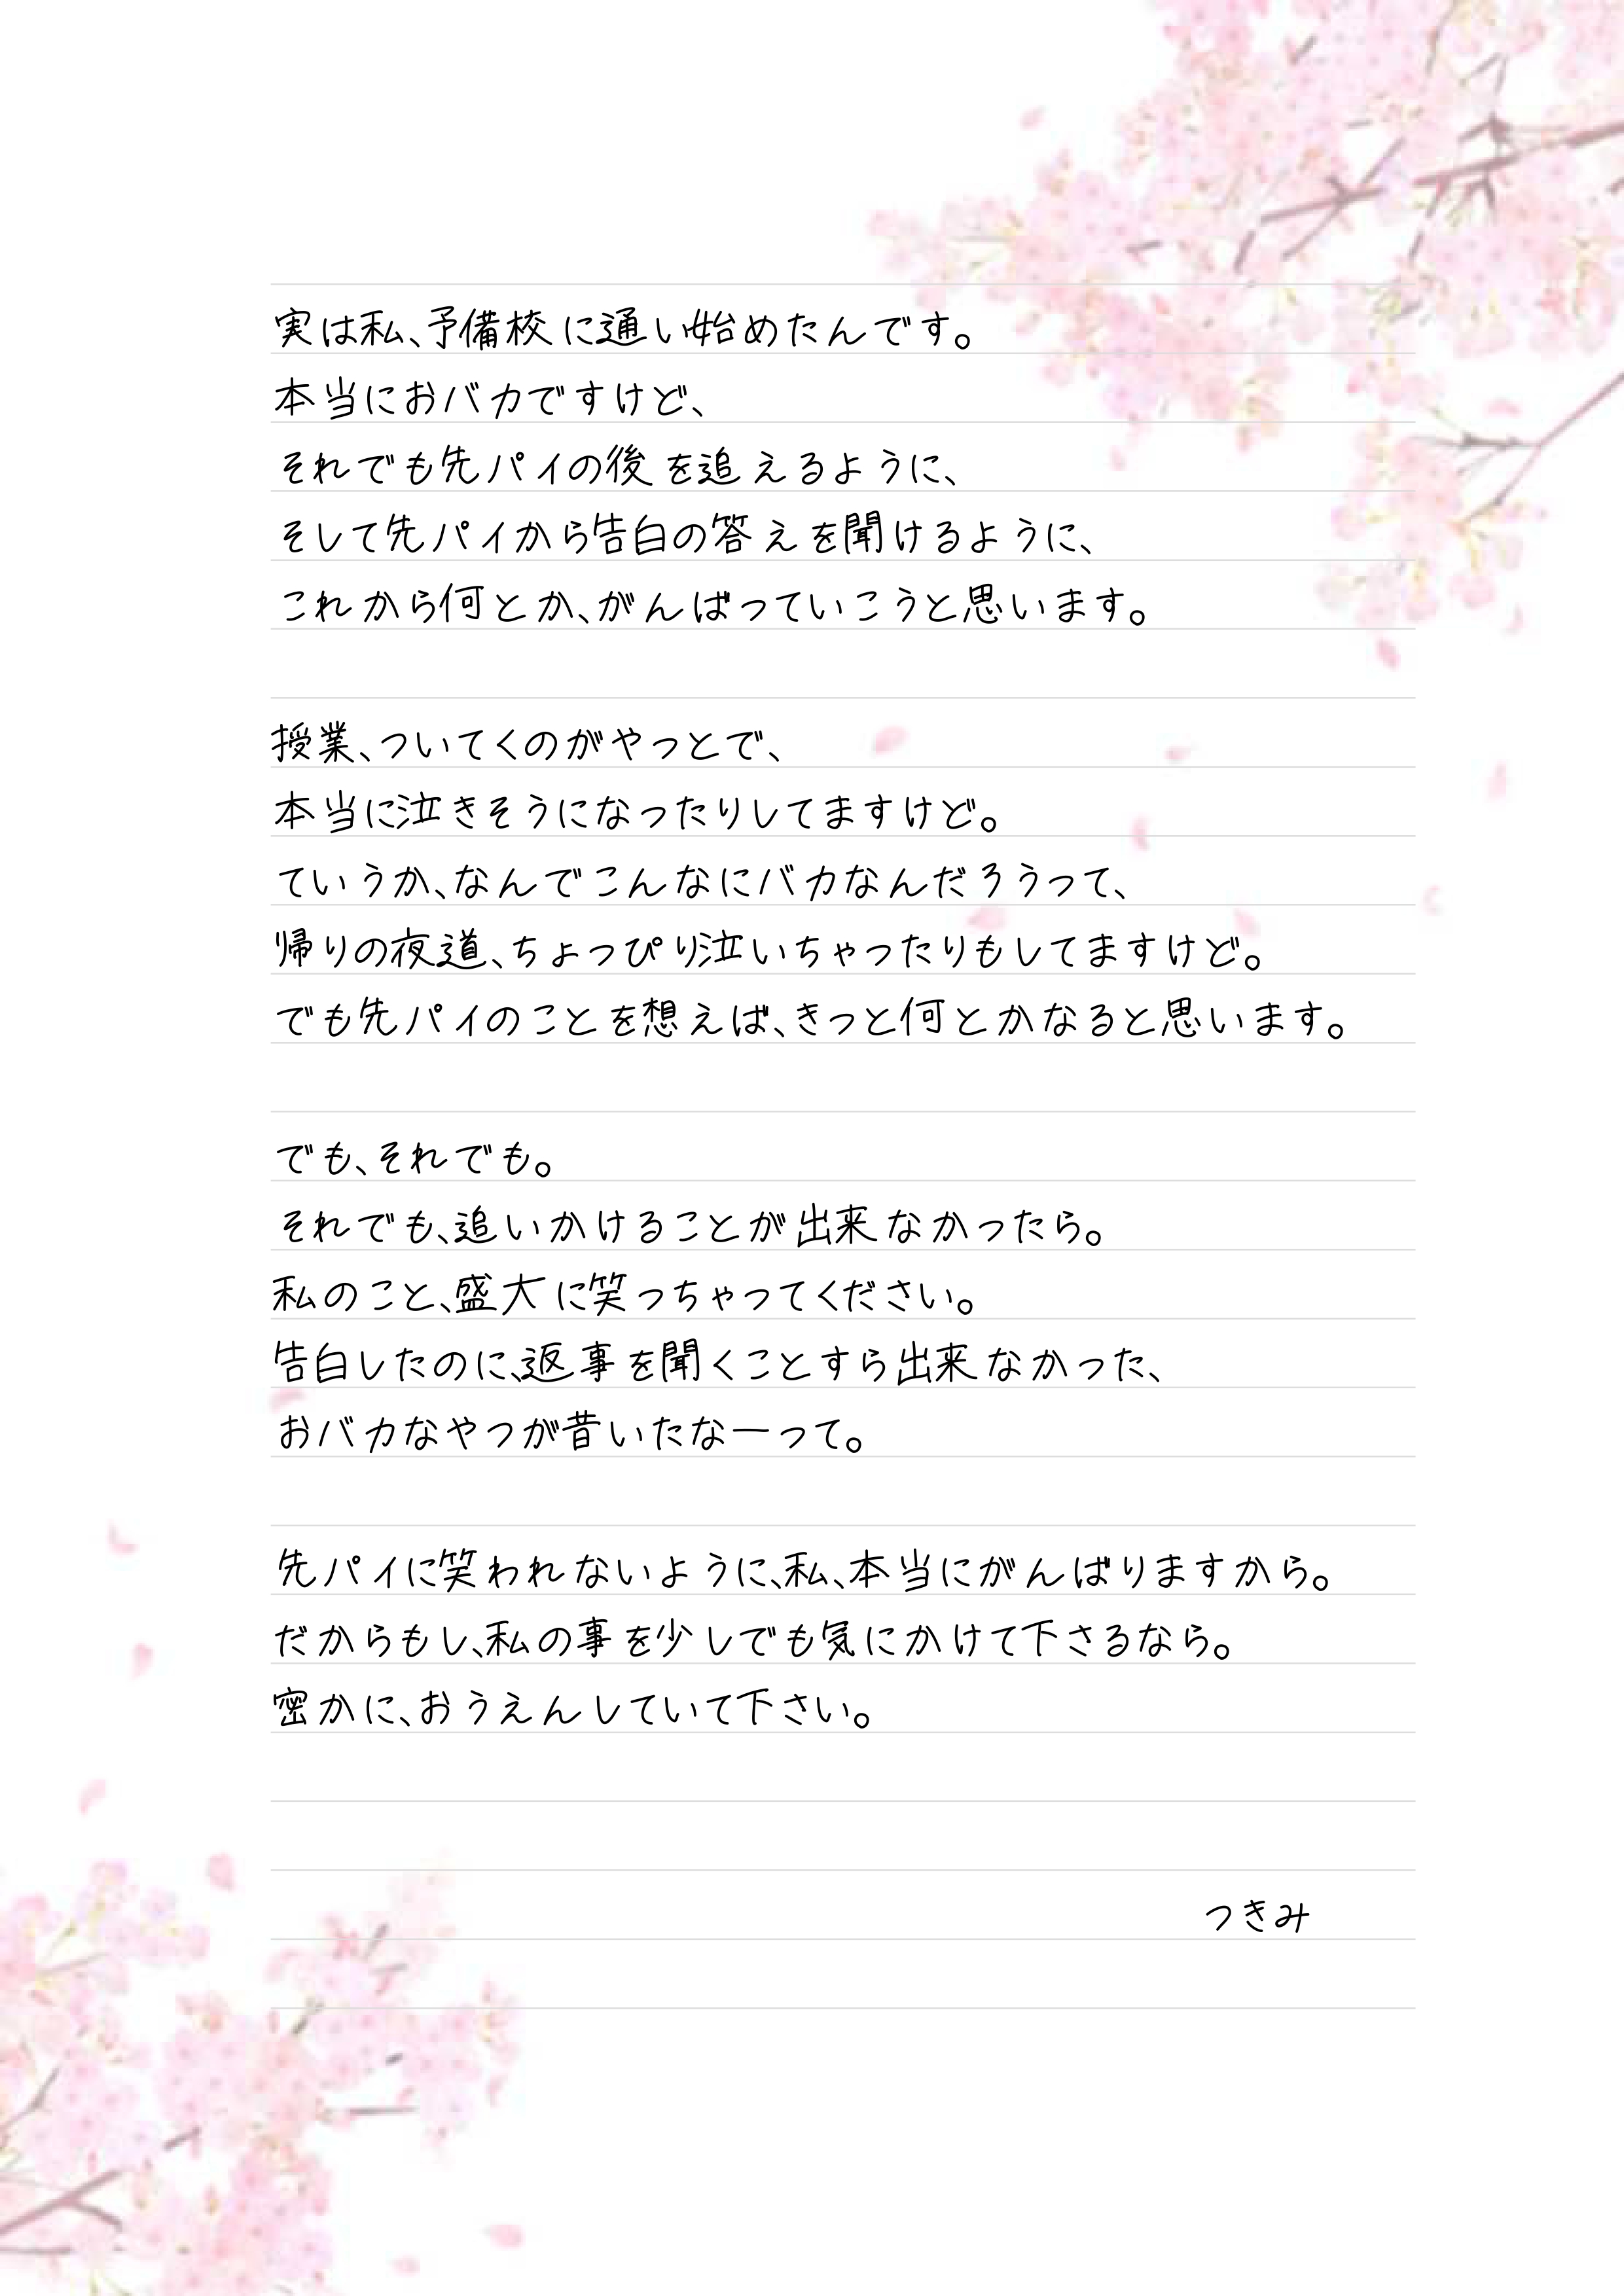 実は私、予備校に通い始めたんです。
本当におバカですけど、
それでも先パイの後を追えるように、
そして先パイから告白の答えを聞けるように、
これから何とか、がんばっていこうと思います。
授業、ついてくのがやっとで、
本当に泣きそうになったりしてますけど。
ていうか、なんでこんなにバカなんだろうって、
帰りの夜道、ちょっぴり泣いちゃったりもしてますけど。
でも先パイのことを想えば、きっと何とかなると思います。
でも、それでも。
それでも、追いかけることが出来なかったら。
私のこと、盛大に笑っちゃってください。
告白したのに、返事を聞くことすら出来なかった、
おバカなやつが昔いたなーって。
先パイに笑われないように、私、本当にがんばりますから。
だからもし、私の事を少しでも気にかけて下さるなら。
密かに、おうえんしていて下さい。
つきみ